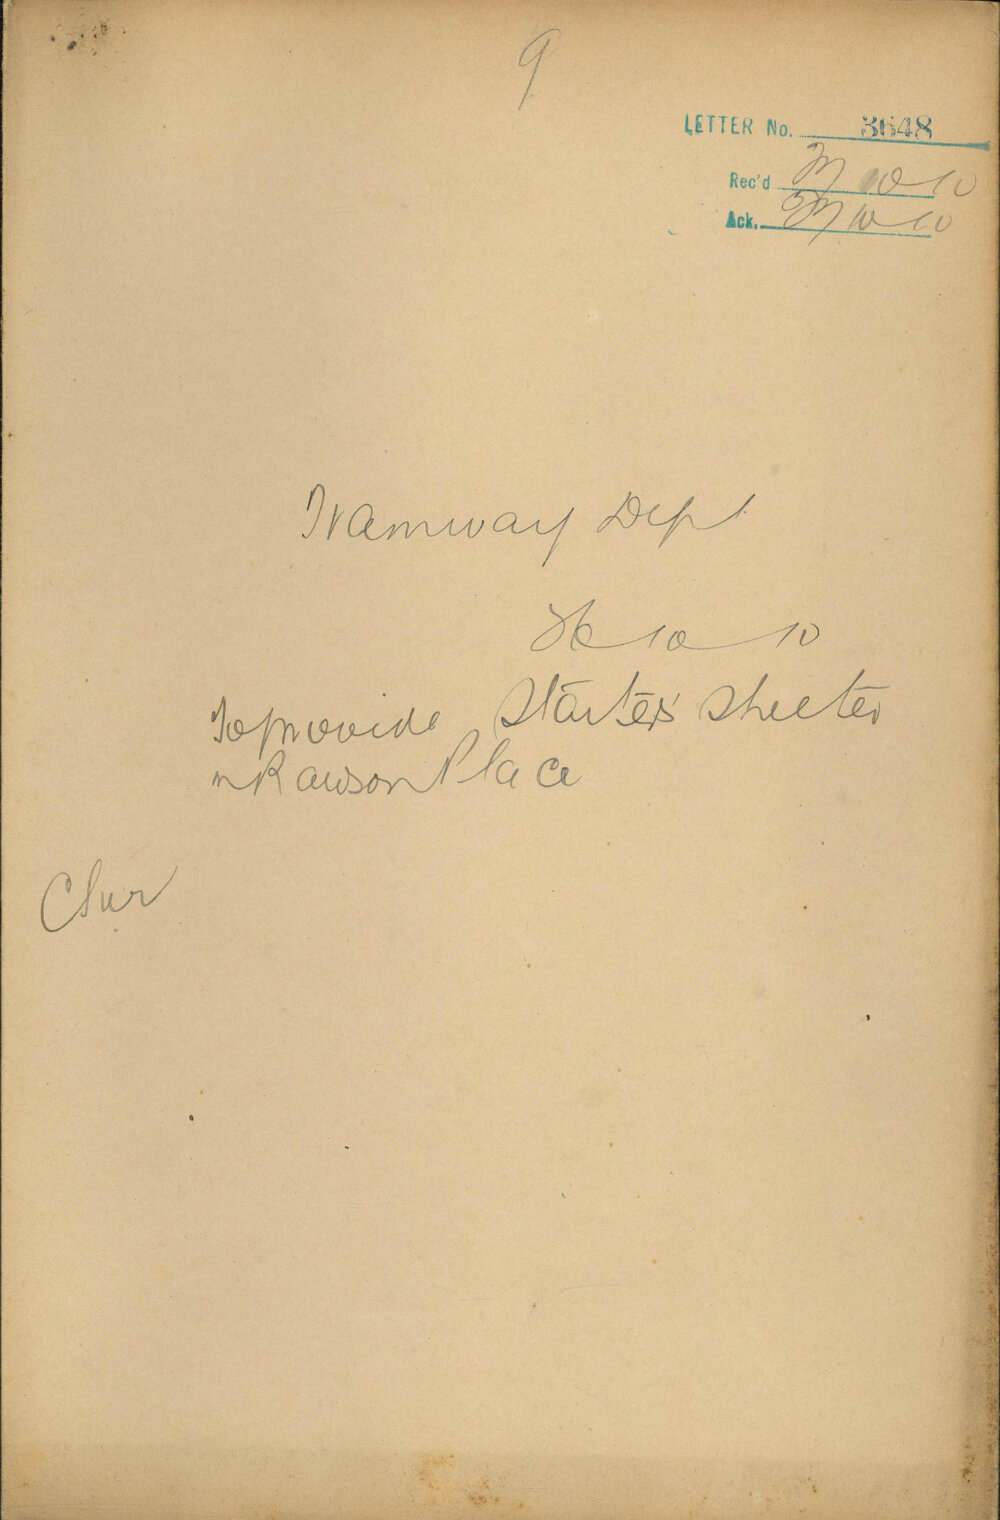 9
LETTER No. 3648
Rec'd 10 10
Ack. 10 10
Tramway Dept
10 10
To provide Starters Shelter
in Rawson Place
C Sur